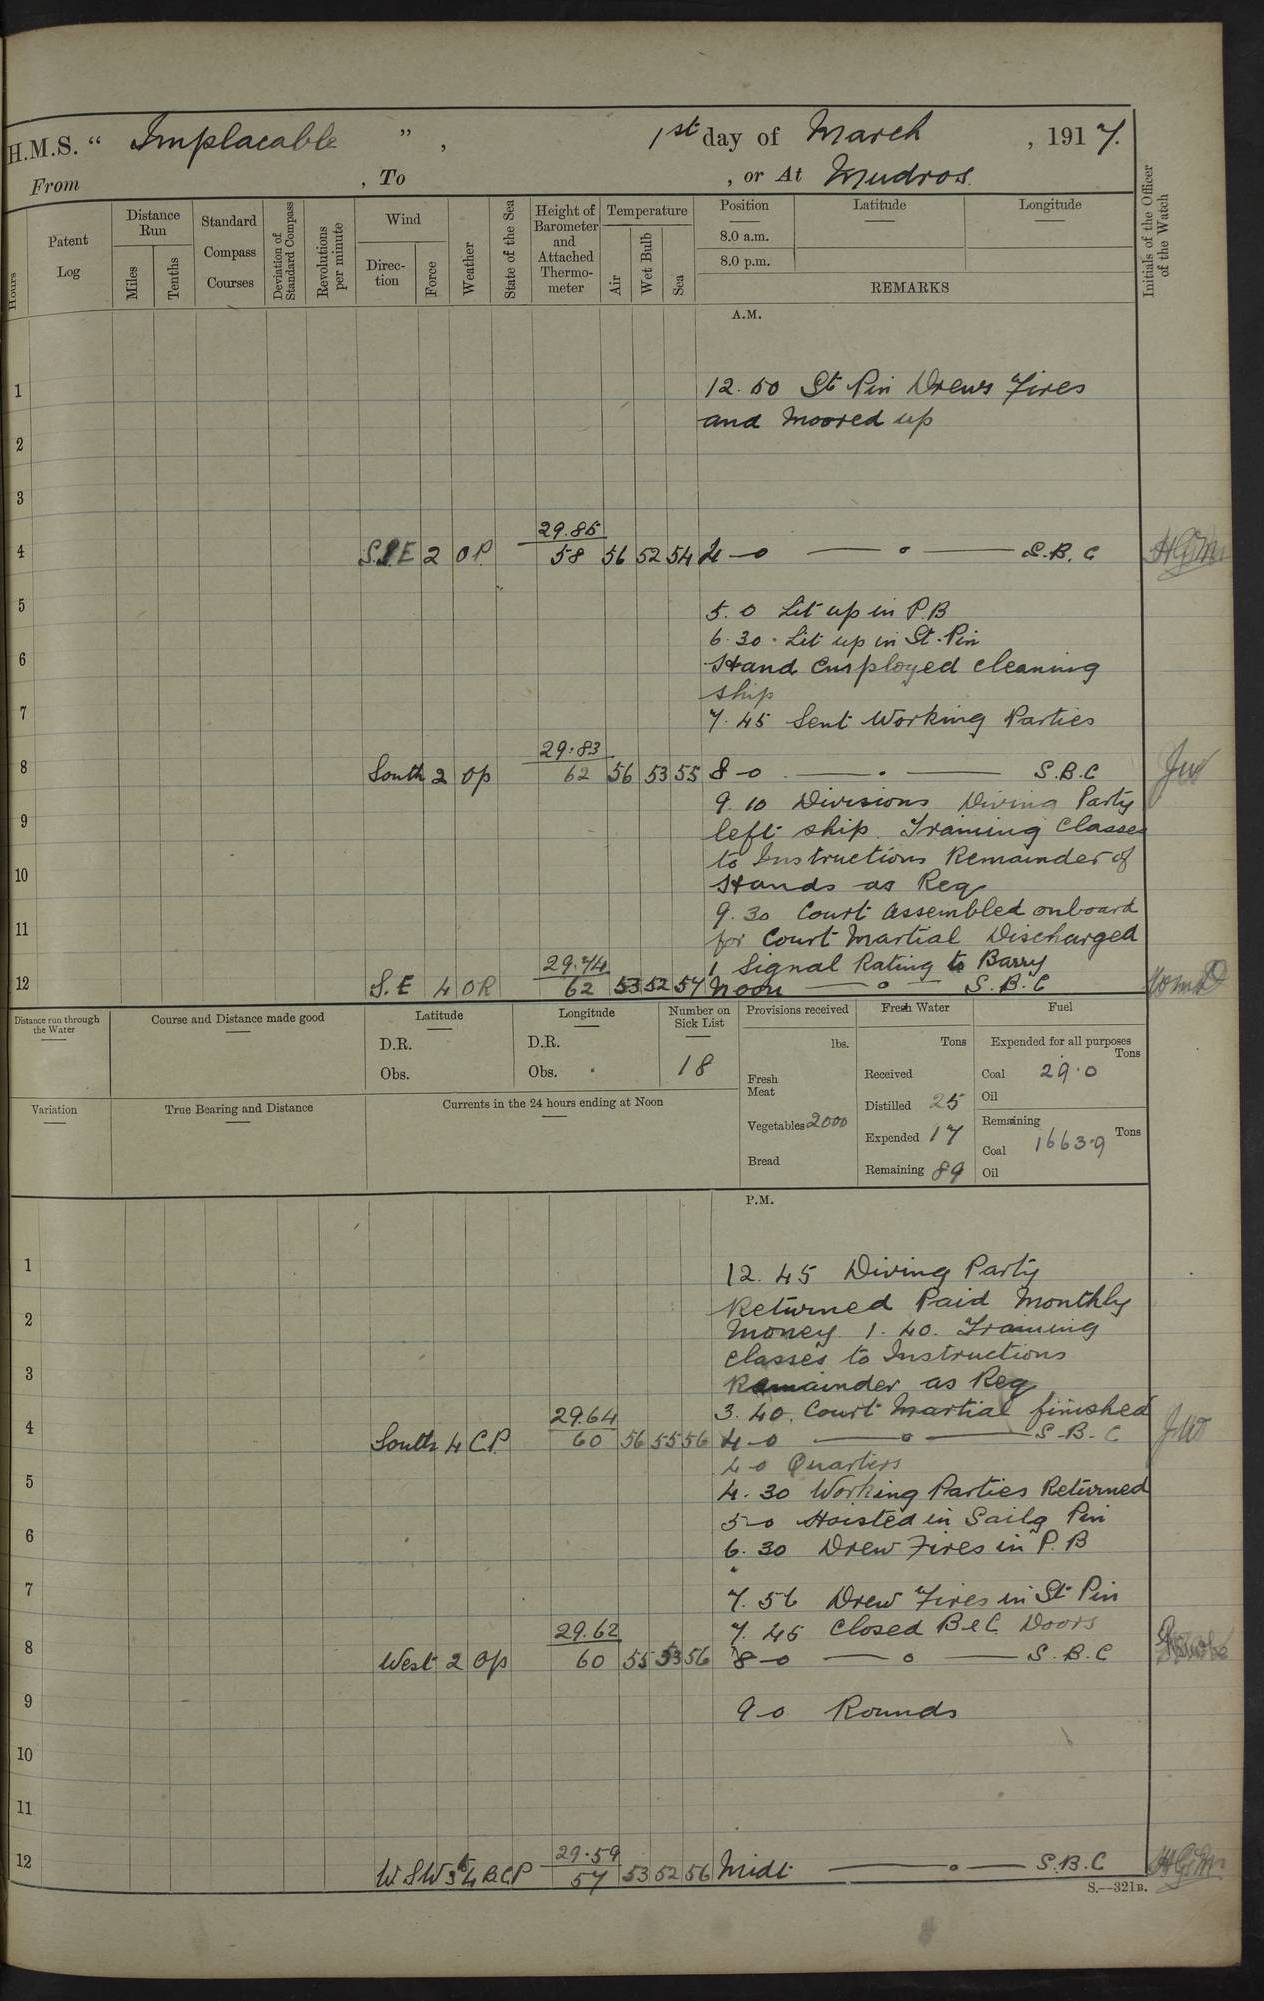 H.M.S. “ Implacable ”, 1st day of March, 1917.
From , To , or At Mudros.
Hours
Patent Log
Distance Run
Miles
Tenths
Standard Compass Courses
Deviation of Standard Compass
Revolutions per minute
Wind
Direction
Force
Weather
State of the Sea
Height of Barometer and Attached Thermometer
Temperature
Air
Wet Bulb
Sea
Position
Latitude
Longitude
8.0 a.m.
8.0 p.m.
REMARKS
Initials of the Officer of the Watch
A.M.
1 12.50 St Pin Drew Fires
and Moored up
2
3
29.85
4 S.S.E 2 O P. 58 56 52 54 4-0 S.B.C
5 5.0 Lit up in P.B
6.30. Lit up in St. Pin
6 Hand Employed cleaning
ship
7 7.45 Sent Working Parties
29.83
8 South 2 Op 62 56 53 55 8-0 S.B.C
9.10 Divisions Diving Party
9 left ship. Training Classes
to Instructions Remainder of
10 Hands as Req
9.30 Court Assembled onboard
11 for Court Martial Discharged
29.74 1 Signal Rating to Barry
12 S.E 4 O R 62 53 52 57 Noon S.B.C
Distance run through the Water
Course and Distance made good
Latitude
D.R.
Obs.
Longitude
D.R.
Obs.
Number on Sick List
18
Provisions received
lbs.
Fresh Meat
Vegetables 2000
Bread
Fresh Water
Tons
Received
Distilled 25
Expended 17
Remaining 89
Fuel
Expended for all purposes
Tons
Coal 29.0
Oil
Remaining
Tons
Coal 1663.9
Oil
Variation
True Bearing and Distance
Currents in the 24 hours ending at Noon
P.M.
1 12.45 Diving Party
2 Returned Paid Monthly
Money 1.40. Training
3 Classes to Instructions
Remainder as Req
29.64 3.40. Court Martial finished
4 South 4 C.P. 60 56 55 56 4-0 S.B.C
4-0 Quarters
5 4.30 Working Parties Returned
5-0 Hoisted in Sailg Pin
6 6.30 Drew Fires in P.B
7 7.56 Drew Fires in St Pin
29.62 7.45 Closed B & C Doors
8 West 2 Op 60 55 53 56 8-0 S.B.C
9 9-0 Rounds
10
11
29.59
12 W.S.W 3 to 4 B.C.P 57 53 52 56 Midt S.B.C
S.—321B.